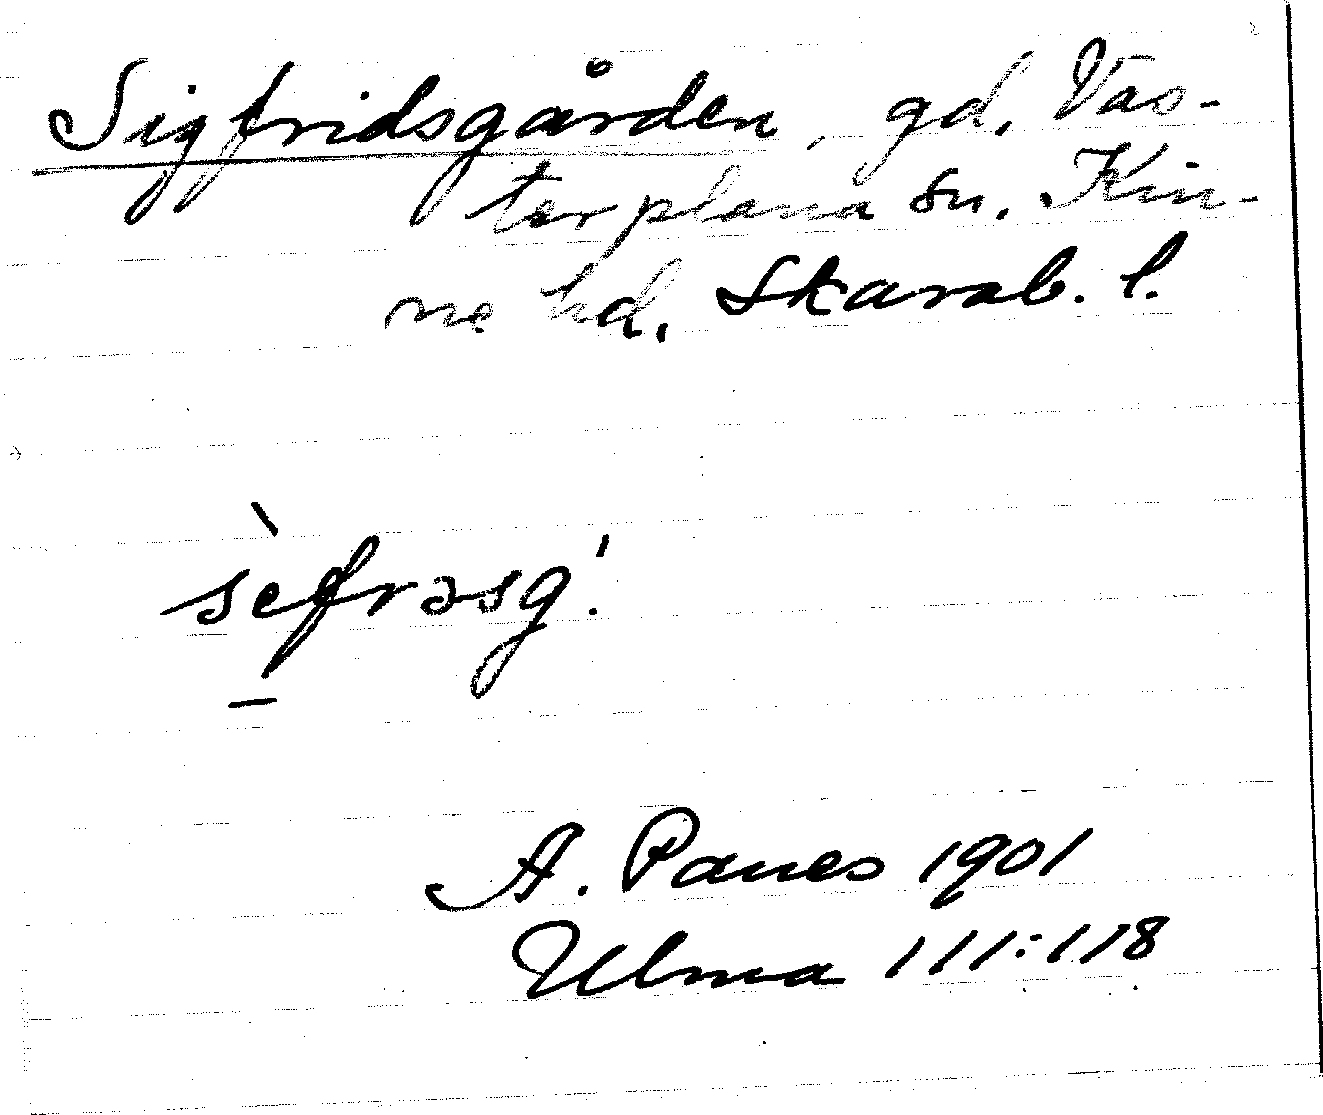 Sigfridsgården, gd. Väs-
terplana sn. Kin-
ne hd. Skarab. l.
sèfrəsg.'
A. Panes 1901
Ulma 111:118